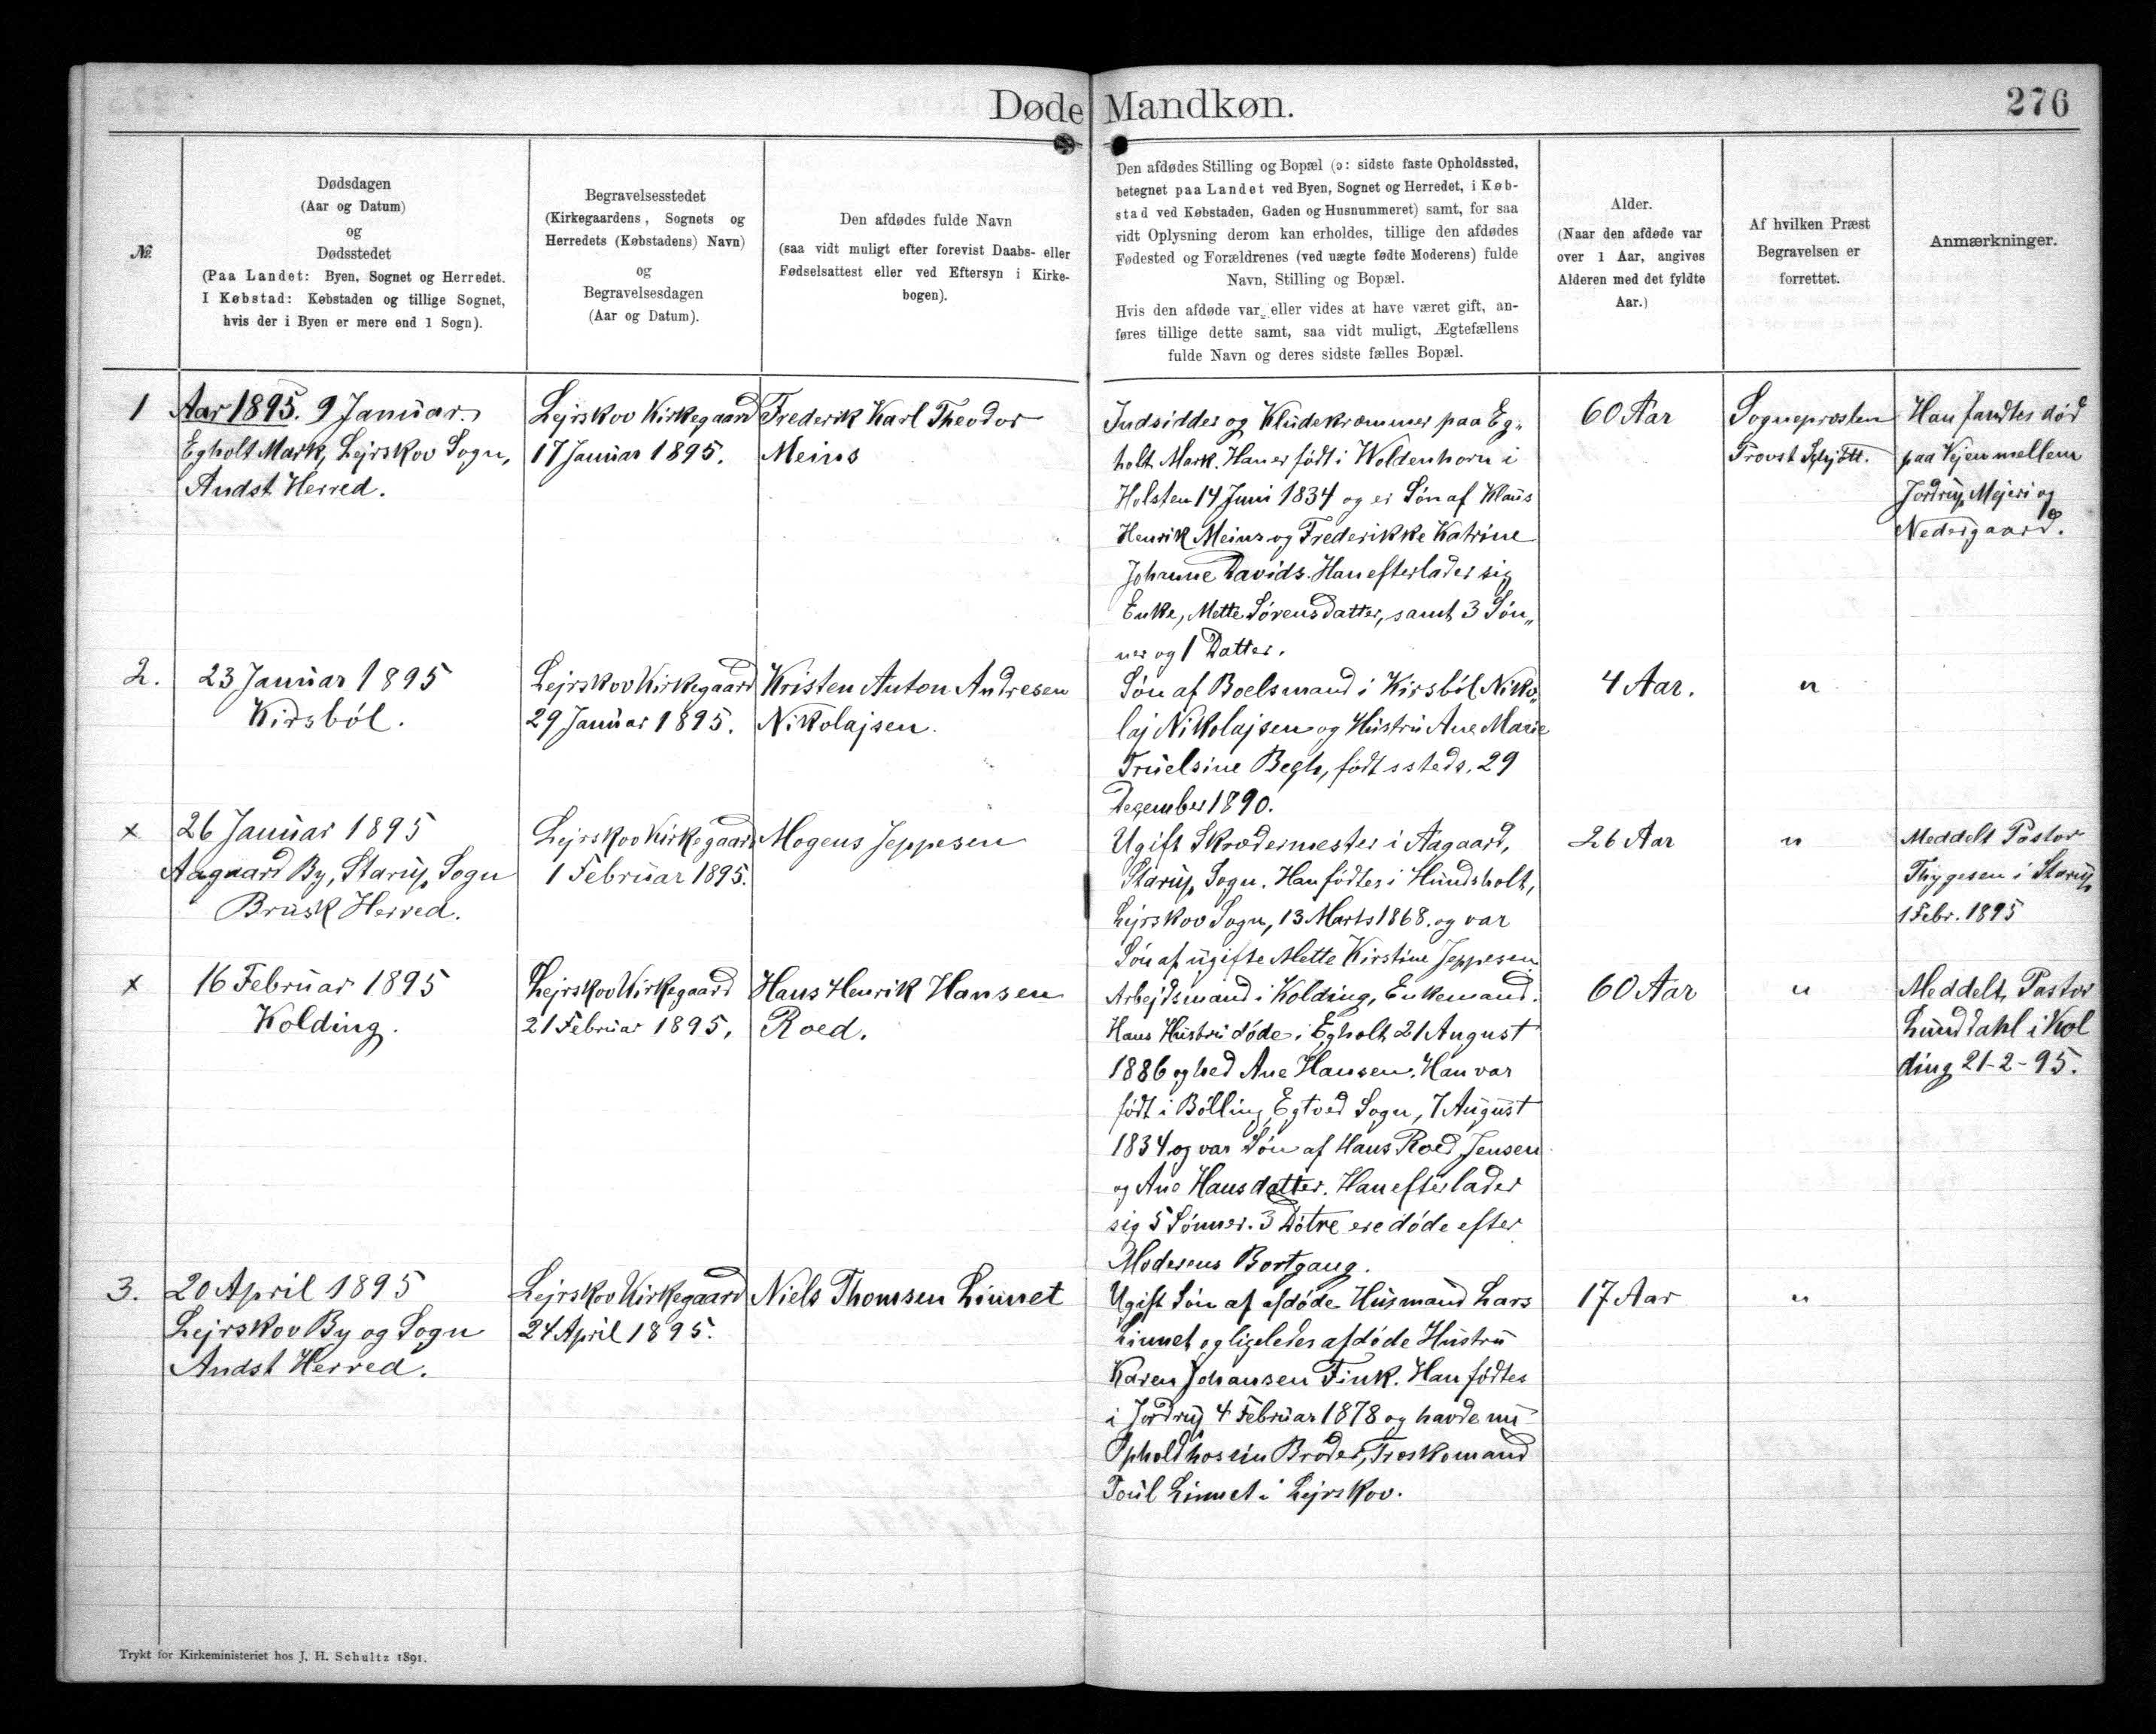 Døde Mandkøn.
276
№
Dødsdagen
(Aar og Datum)
og
Dødsstedet
(Paa Landet: Byen, Sognet og Herredet.
I Købstad: Købstaden og tillige Sognet,
hvis der i Byen er mere end 1 Sogn).
Begravelsesstedet
(Kirkegaardens, Sognets og
Herredets (Købstadens) Navn)
og
Begravelsesdagen
(Aar og Datum).
Den afdødes fulde Navn
(saa vidt muligt efter forevist Daabs- eller
Fødselsattest eller ved Eftersyn i Kirke-
bogen).
Den afdødes Stilling og Bopæl (ɔ: sidste faste Opholdssted,
betegnet paa Landet ved Byen, Sognet og Herredet, i Køb-
stad ved Købstaden, Gaden og Husnummeret) samt, for saa
vidt Oplysning derom kan erholdes, tillige den afdødes
Fødested og Forældrenes (ved uægte fødte Moderens) fulde
Navn, Stilling og Bopæl.
Hvis den afdøde var eller vides at have været gift, an-
føres tillige dette samt, saa vidt muligt, Ægtefællens
fulde Navn og deres sidste fælles Bopæl.
Alder.
(Naar den afdøde var
over 1 Aar, angives
Alderen med det fyldte
Aar.)
Af hvilken Præst
Begravelsen er
forrettet.
Anmærkninger.
1
Aar 1895. 9 Januar
Egholt Mark, Lejrskov Sogn,
Andst Herred.
Lejrskov Kirkegaard
17 Januar 1895.
Frederik Karl Theodor
Meins
Indsidder og Kludekræmmer paa Eg„
holt Mark. Han er født i Woldenhorn i
Holsten 14 Juni 1834 og er Søn af Klaus
Henrik Meins og Frederikke Katrine
Johanne Davids. Han efterlader sig
Enke, Mette Sørensdatter, samt 3 Søn„
ner og 1 Datter.
60 Aar
Sognepræsten
Provst Schjøtt.
Han fandtes død
paa Vejen mellem
Jordrup Mejeri og
Nedergaard.
2.
23 Januar 1895
Kirsbøl.
Lejrskov Kirkegaard
29 Januar 1895.
Kristen Anton Andresen
Nikolajsen.
Søn af Boelsmand i Kirsbøl Niko„
laj Nikolajsen og Hustru Ane Marie
Truelsine Begh, født ssteds. 29
Dezember 1890.
4 Aar.
"
x
26 Januar 1895
Aagaard By, Starup Sogn
Brusk Herred.
Lejrskov Kirkegaard
1 Februar 1895.
Mogens Jeppesen
Ugift Skrædermester i Aagaard,
Starup Sogn. Han fødtes i Hundsholt,
Lejrskov Sogn, 13 Marts 1868. og var
Søn af ugifte Mette Kirstine Jeppesen.
26 Aar
"
Meddelt Pastor
Thygesen i Starup
1 Febr. 1895
x
16 Februar 1895
Kolding.
Lejrskov Kirkegaard
21 Februar 1895.
Hans Henrik Hansen
Roed.
Arbejdsmand i Kolding, Enkemand.
Hans Hustru døde i Egholt 21 August
1886 og hed Ane Hansen. Han var
født i Bølling Egtved Sogn, 7 August
1834 og var Søn af Hans Roed Jensen
og Ane Hansdatter. Han efterlader
sig 5 Sønner. 3 Døtre ere døde efter
Moderens Bortgang.
60 Aar
"
Meddelt Pastor
Lunddahl i Kol
ding 21-2-95.
3.
20 April 1895
Lejrskov By og Sogn
Andst Herred.
Lejrskov Kirkegaard
24 April 1895.
Niels Thomsen Linnet
Ugift Søn af afdøde Husmand Lars
Linnet og ligeledes afdøde Hustru
Karen Johansen Fink. Han fødtes
i Jordrup 4 Februar 1878 og havde nu
Ophold hos sin Broder, Træskomand
Poul Linnet i Lejrskov.
17 Aar
"
Trykt for Kirkeministeriet hos J. H. Schultz 1891.